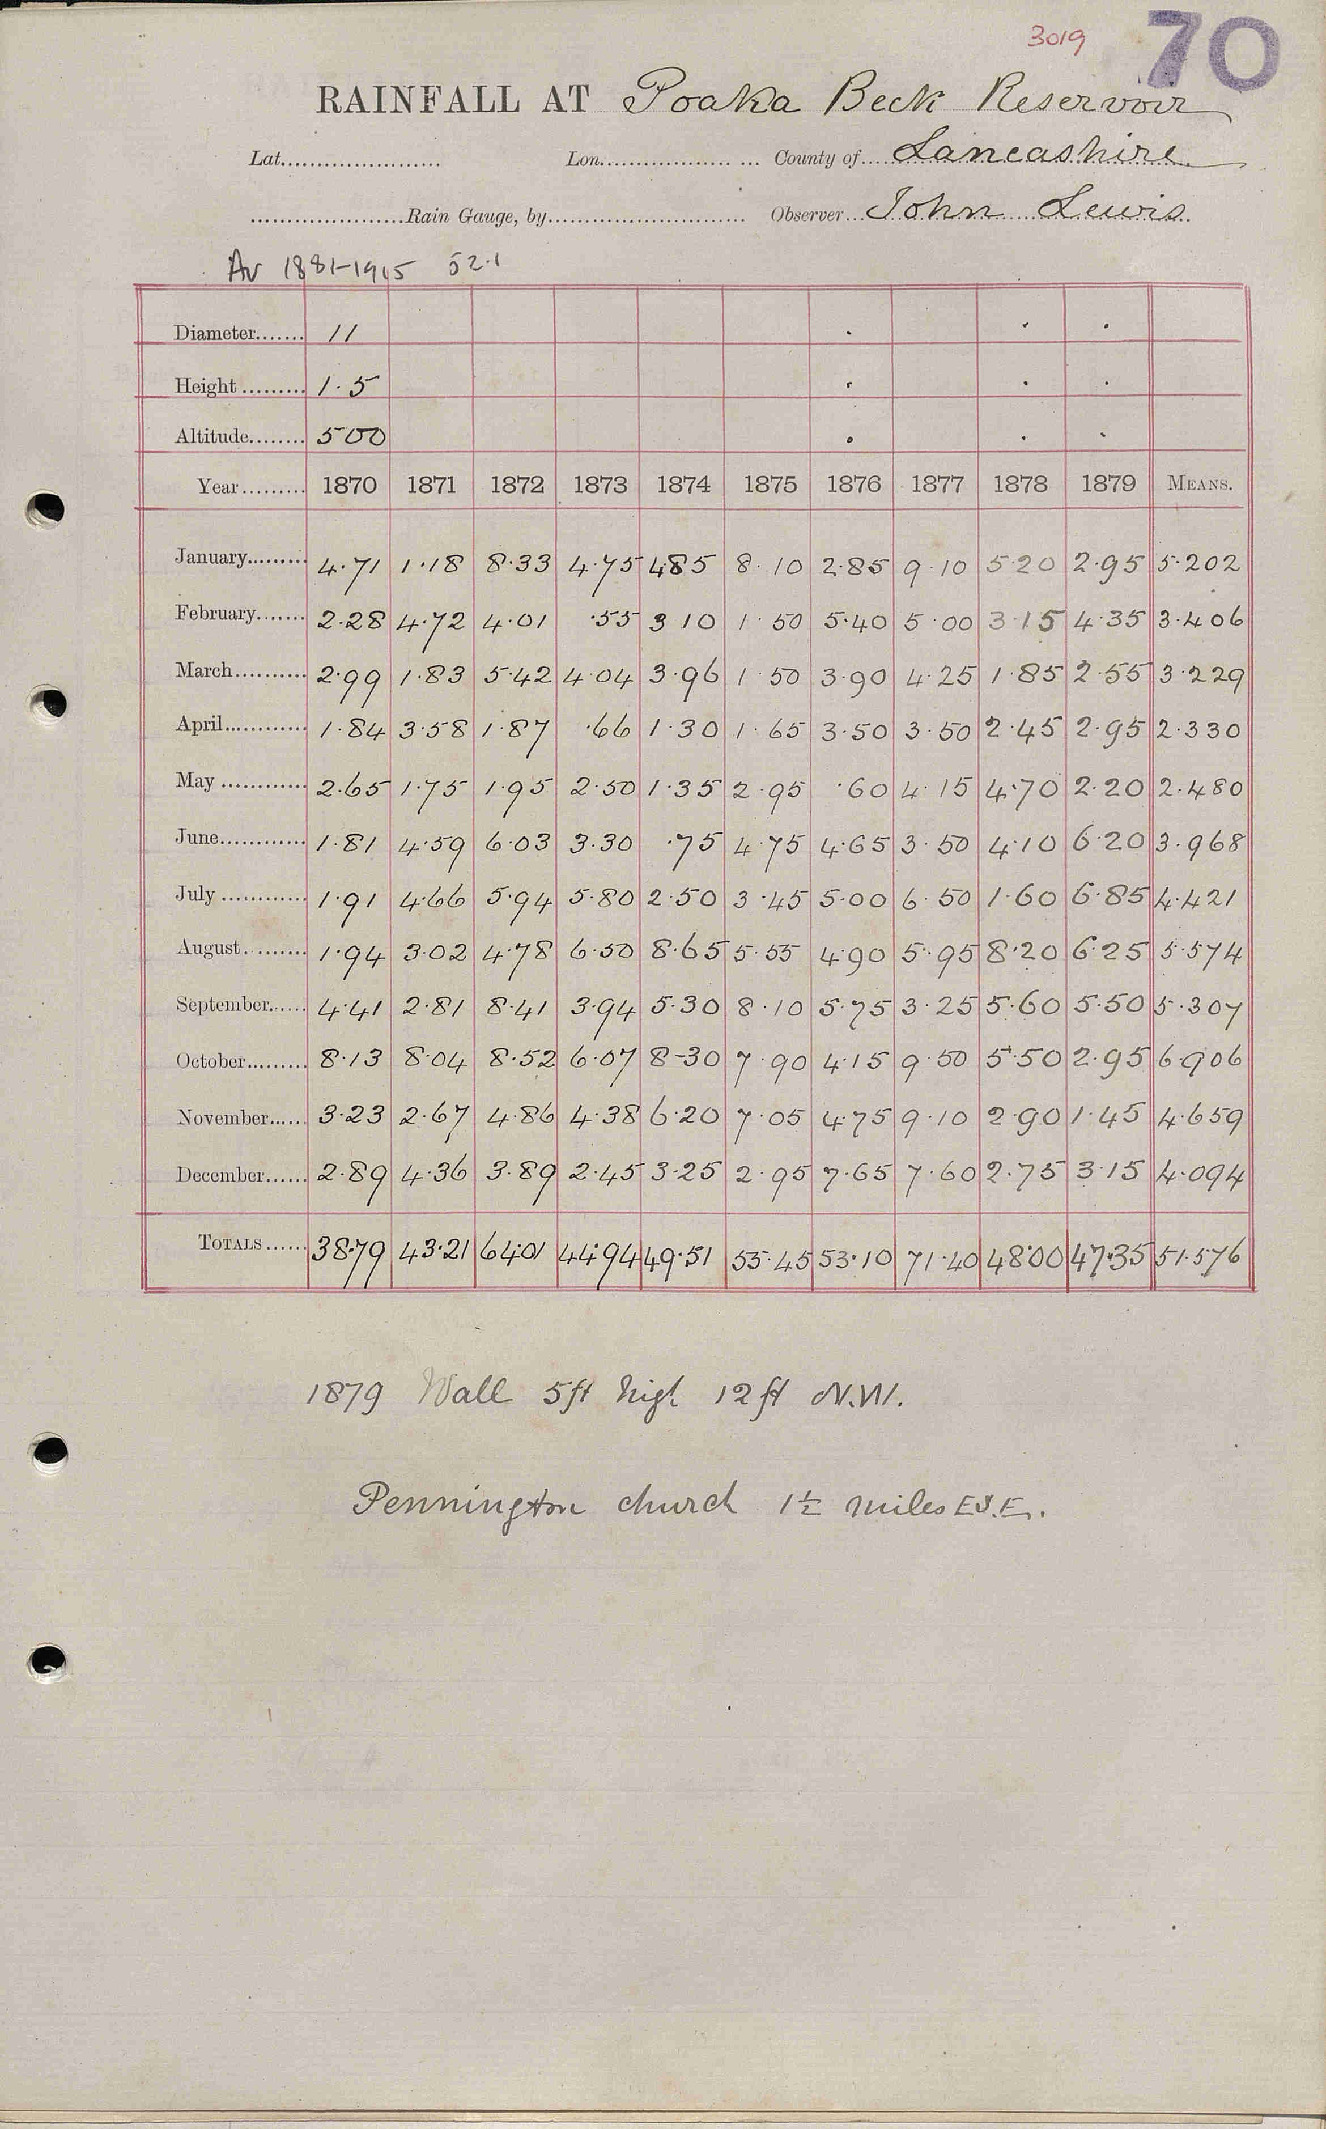 3019 70
RAINFALL AT Poaka Beck Reservoir
Lat. Lon. County of Lancashire
Rain Gauge, by Observer John Lewis
Av 1881-1915 52.1
Diameter 11
Height 1.5
Altitude 500
Year 1870 1871 1872 1873 1874 1875 1876 1877 1878 1879 MEANS.
January 4.71 1.18 8.33 4.75 4.85 8.10 2.85 9.10 5.20 2.95 5.202
February 2.28 4.72 4.01 .55 3.10 1.50 5.40 5.00 3.15 4.35 3.406
March 2.99 1.83 5.42 4.04 3.96 1.50 3.90 4.25 1.85 2.55 3.229
April 1.84 3.58 1.87 .66 1.30 1.65 3.50 3.50 2.45 2.95 2.330
May 2.65 1.75 1.95 2.50 1.35 2.95 .60 4.15 4.70 2.20 2.480
June 1.81 4.59 6.03 3.30 .75 4.75 4.65 3.50 4.10 6.20 3.968
July 1.91 4.66 5.94 5.80 2.50 3.45 5.00 6.50 1.60 6.85 4.421
August 1.94 3.02 4.78 6.50 8.65 5.55 4.90 5.95 8.20 6.25 5.574
September 4.41 2.81 8.41 3.94 5.30 8.10 5.75 3.25 5.60 5.50 5.307
October 8.13 8.04 8.52 6.07 8.30 7.90 4.15 9.50 5.50 2.95 6.906
November 3.23 2.67 4.86 4.38 6.20 7.05 4.75 9.10 2.90 1.45 4.659
December 2.89 4.36 3.89 2.45 3.25 2.95 7.65 7.60 2.75 3.15 4.094
TOTALS 38.79 43.21 64.01 44.94 49.51 55.45 53.10 71.40 48.00 47.35 51.576
1879 Wall 5ft high 12ft N.W.
Pennington church 1½ miles E.S.E.